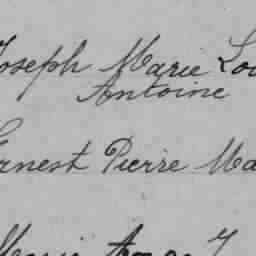 Joseph Marie Lou
Antoine
Ernest Pierre Ma
Marie